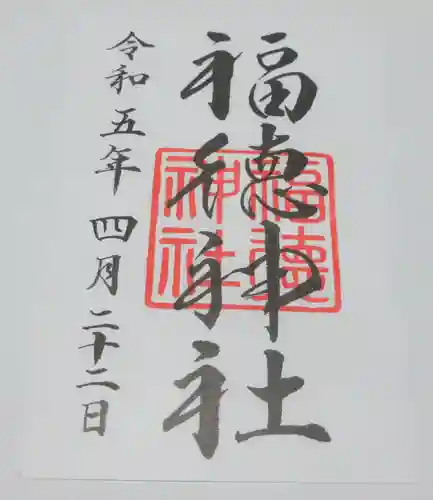 福徳神社
福徳
神社
令和五年四月二十二日